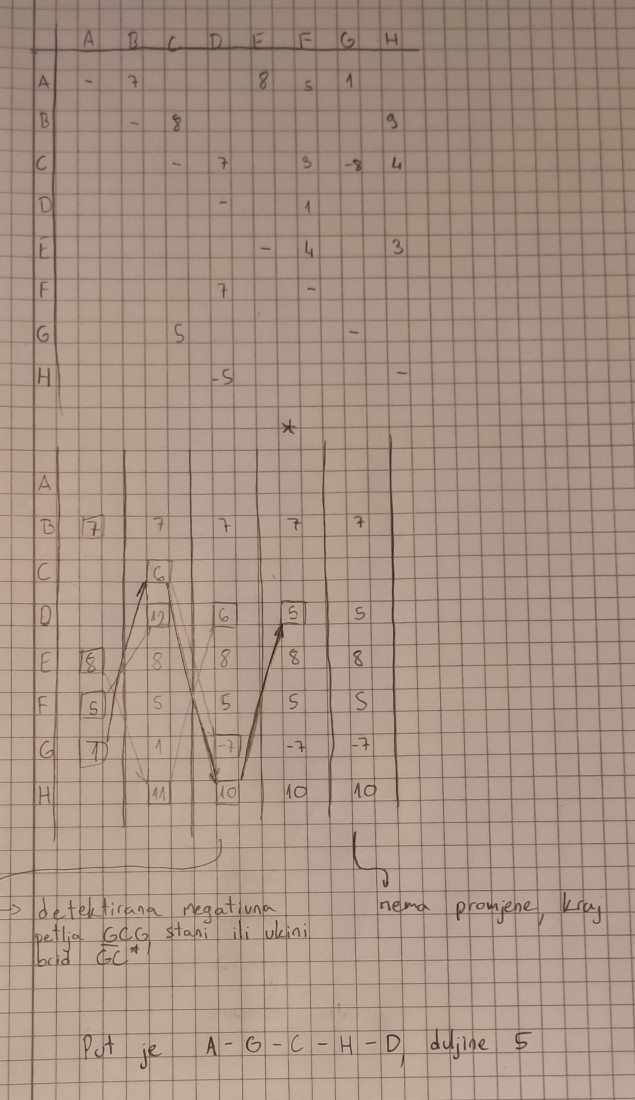 A B C D E F G H
A - 7 8 5 1
B - 8 9
C - 7 3 -8 4
D - 1
E - 4 3
F 7 -
G 5 -
H -5 -
*
A
B 7 7 7 7 7
C 6
D 12 6 5 5
E 8 8 8 8 8
F 5 5 5 5 5
G 1 1 -7 -7 -7
H 11 10 10 10
→ detektirana negativna
petlja GCG, stani ili ukini
brid GC*
nema promjene, kraj
Put je A-G-C-H-D, duljine 5